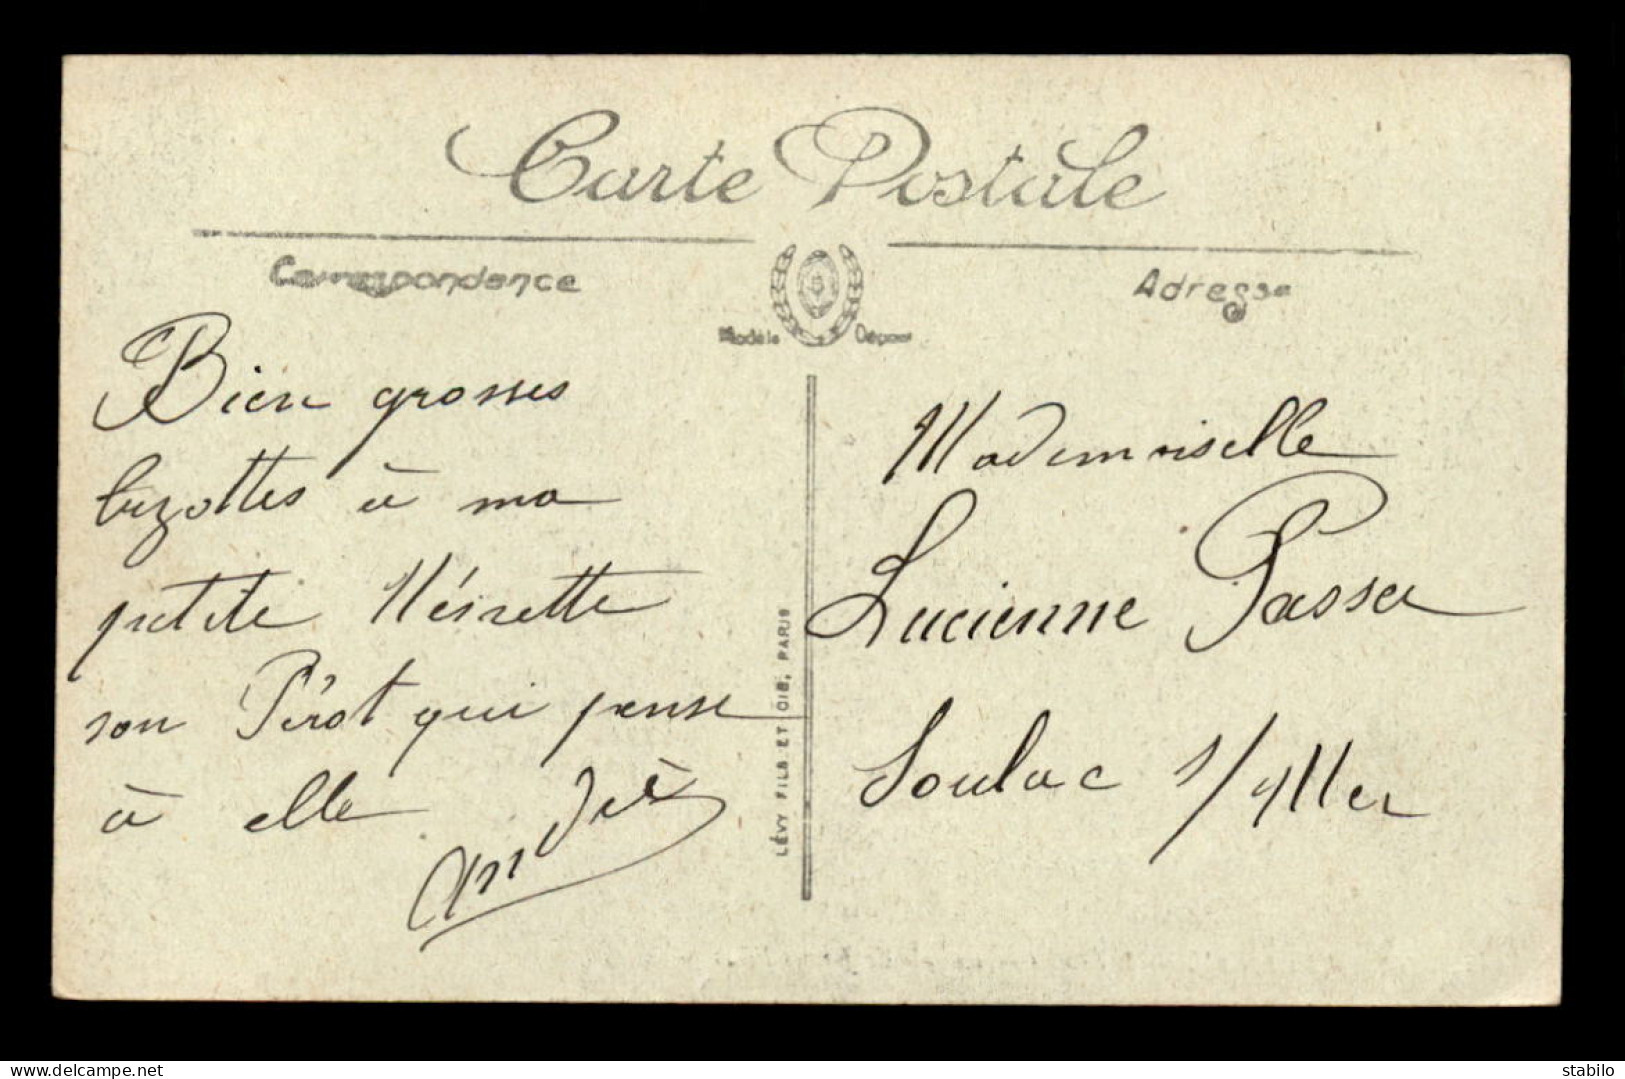 Carte Postale
Correspondance
Adresse
Modèle Déposé
Bien grosses
bizottes à ma
petite Nénette
son Pirot qui pense
à elle
André
LÉVY FILS ET CIE, PARIS
Mademoiselle
Lucienne
Soulac s/Mer
delcampe.net
stabilo